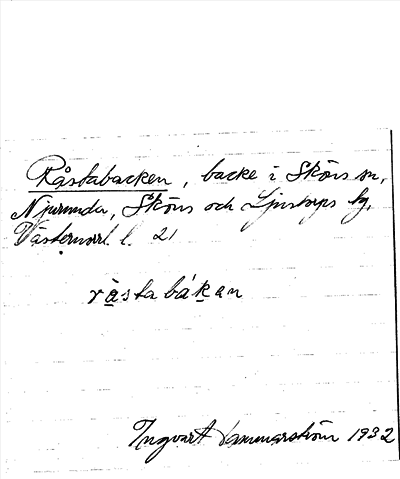 Råstabacken, backe i Sköns sn,
Njurunda, Sköns och Ljustorps tg,
Västernorrl. l. 21
råsta bákan
Ingvart Hammarström 1932